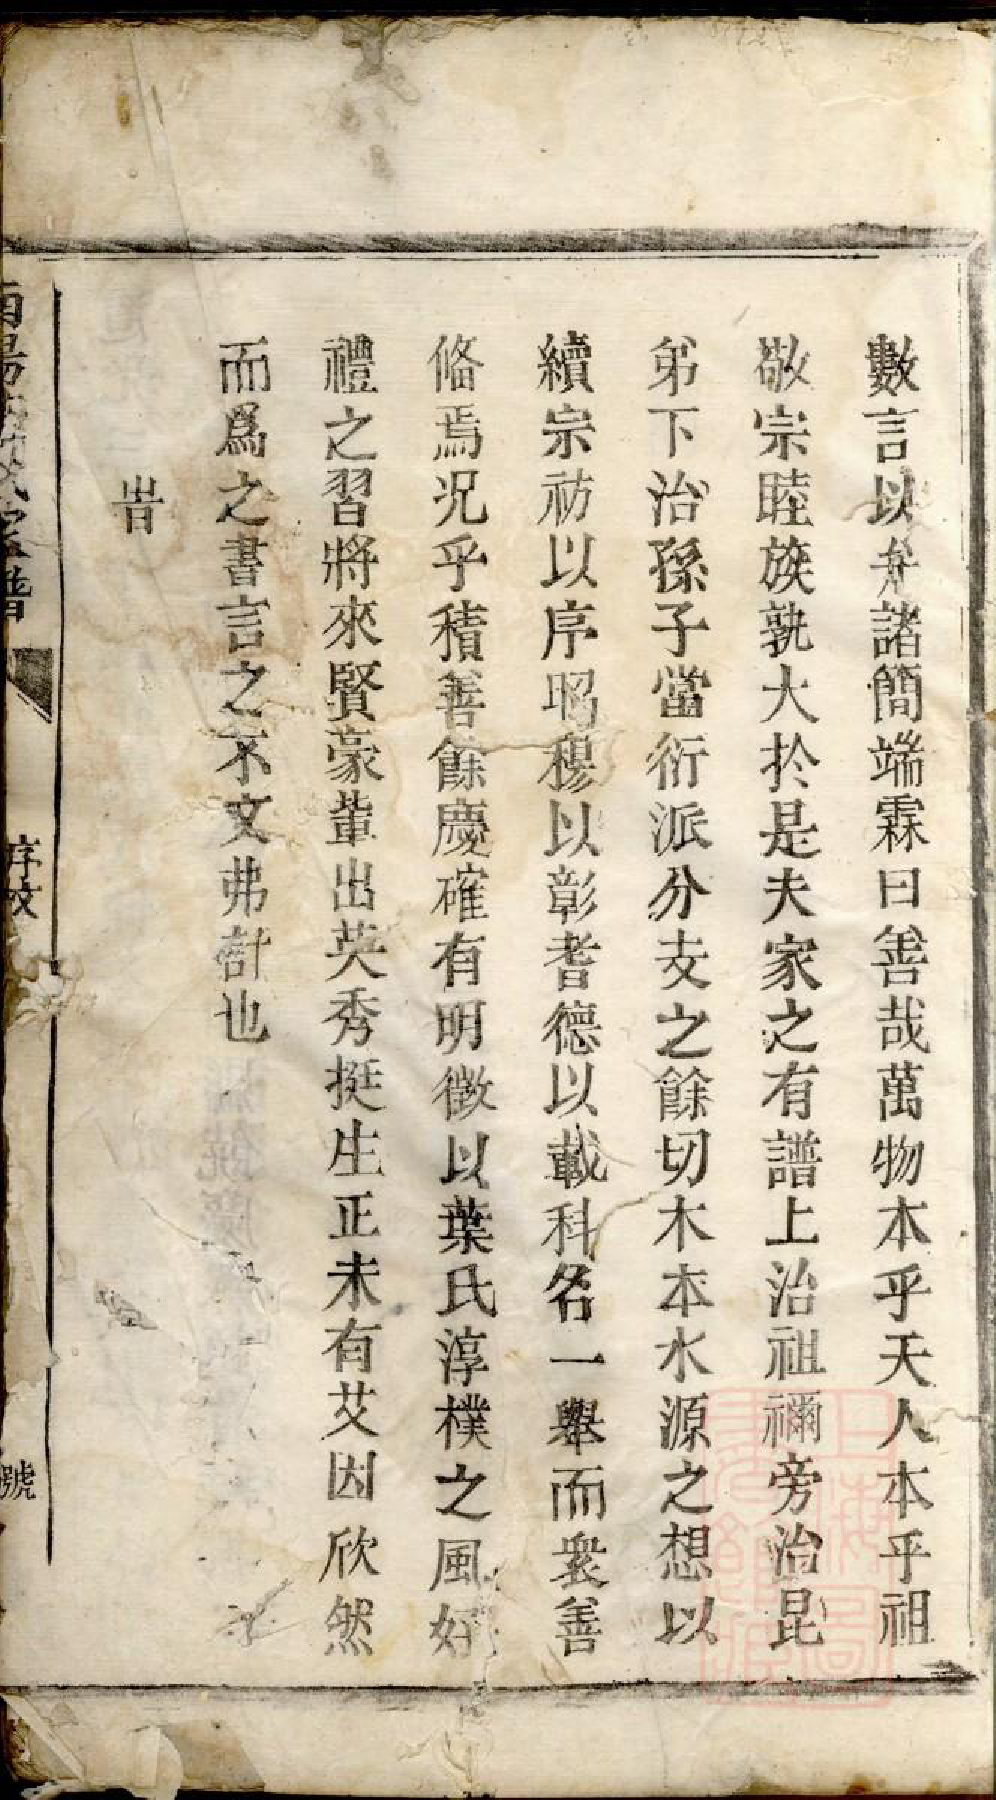 數言以弁諸簡端霖曰善哉萬物本乎天人本乎祖
敬宗睦族孰大於是夫家之有譜上治祖禰旁治昆
弟下治孫子當衍派分支之餘切木本水源之想以
續宗祊以序昭穆以彰耆德以載科名一舉而衆善
脩焉况乎積善餘慶確有明徵以葉氏淳樸之風好
禮之習將來賢豪軰出英秀挺生正未有艾因欣然
而爲之書言之不文弗計也
旹
南陽葉氏宗譜
序文
號